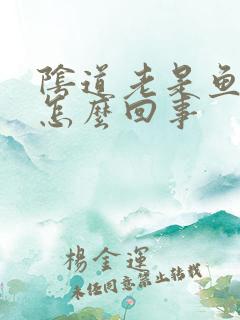 陰道老是魚
怎麼回事
楊金運
未經同意禁止轉載